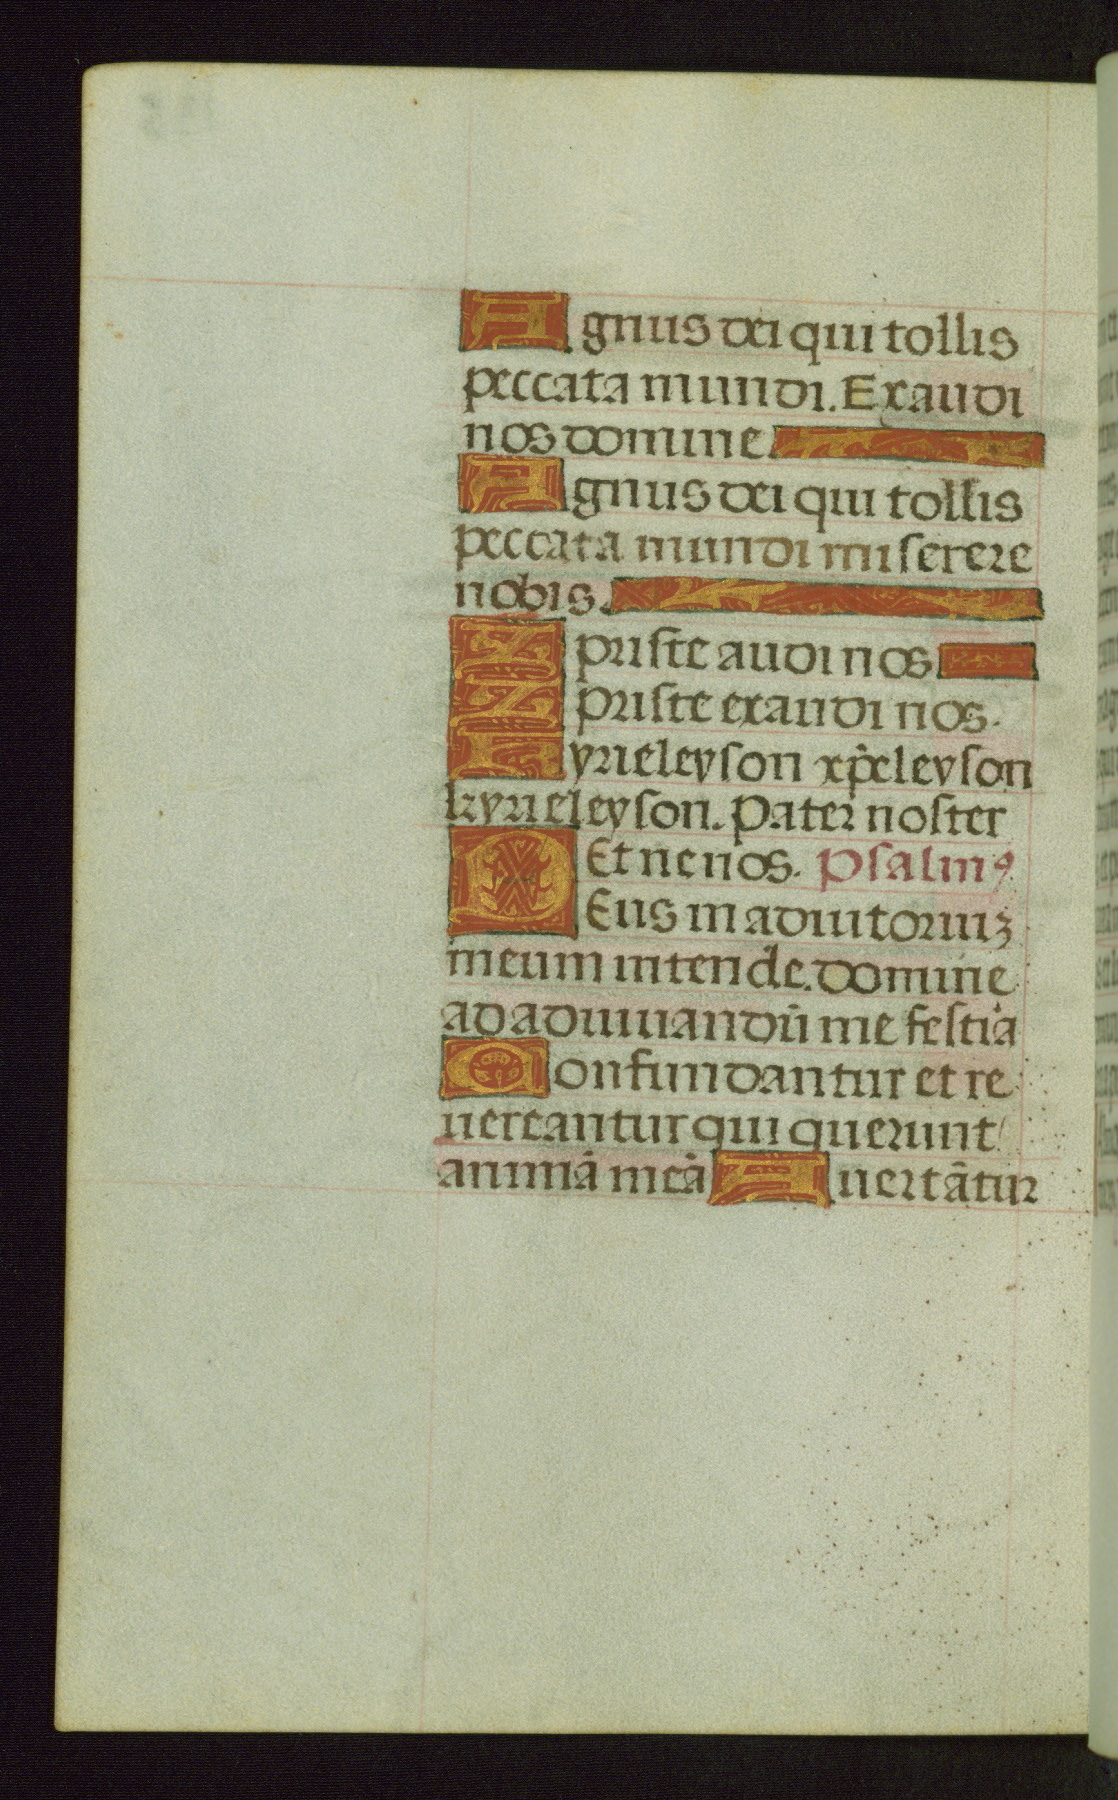 Agnus dei qui tollis
peccata mundi. Exaudi
nos domine.
Agnus dei qui tollis
peccata mundi miserere
nobis.
Xpriste audi nos
Xpriste exaudi nos.
Kyrieleyson xp̄eleyson
kyrieleyson. Pater noster
Et ne nos. Psalmꝰ
DEus in adiutoriuꝫ
meum intende. domine
ad adiuuandū me festīa
Confundantur et re
uereantur qui querunt
animā meā Auertātur